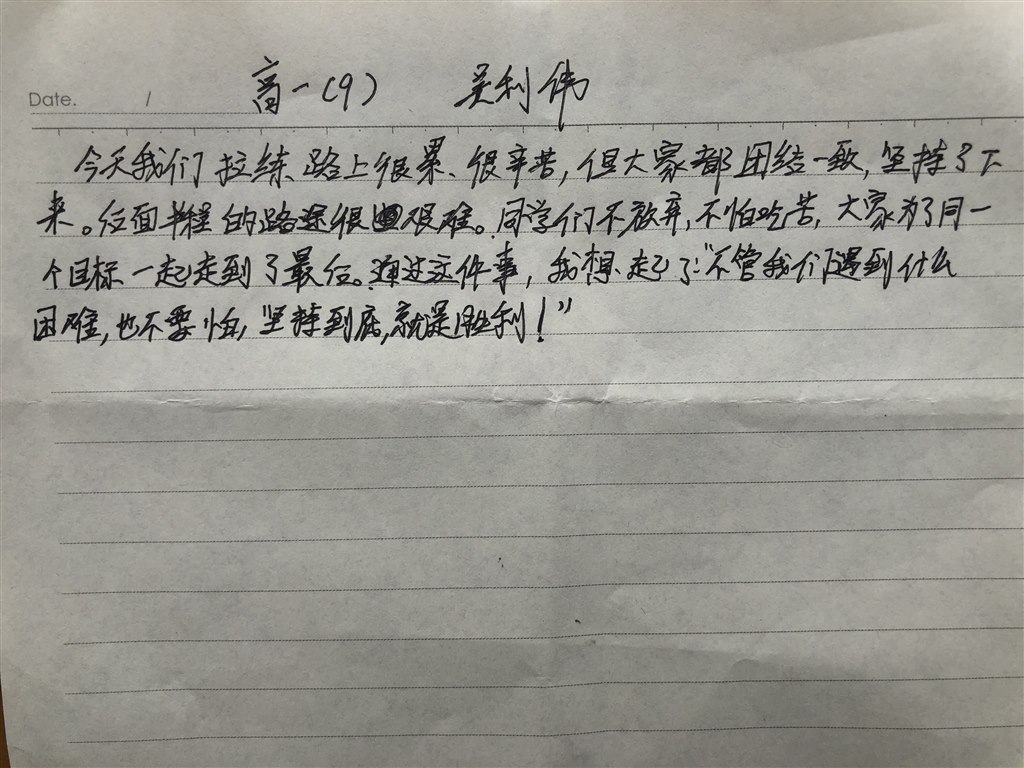 Date. / 高一(9) 吴利伟
今天我们拉练路上很累、很辛苦,但大家都团结一致,坚持了下
来。后面半程的路途很艰难。同学们不放弃,不怕吃苦,大家为了同一
个目标一起走到了最后。通过这件事,我想起了:“不管我们遇到什么
困难,也不要怕,坚持到底,就是胜利!”